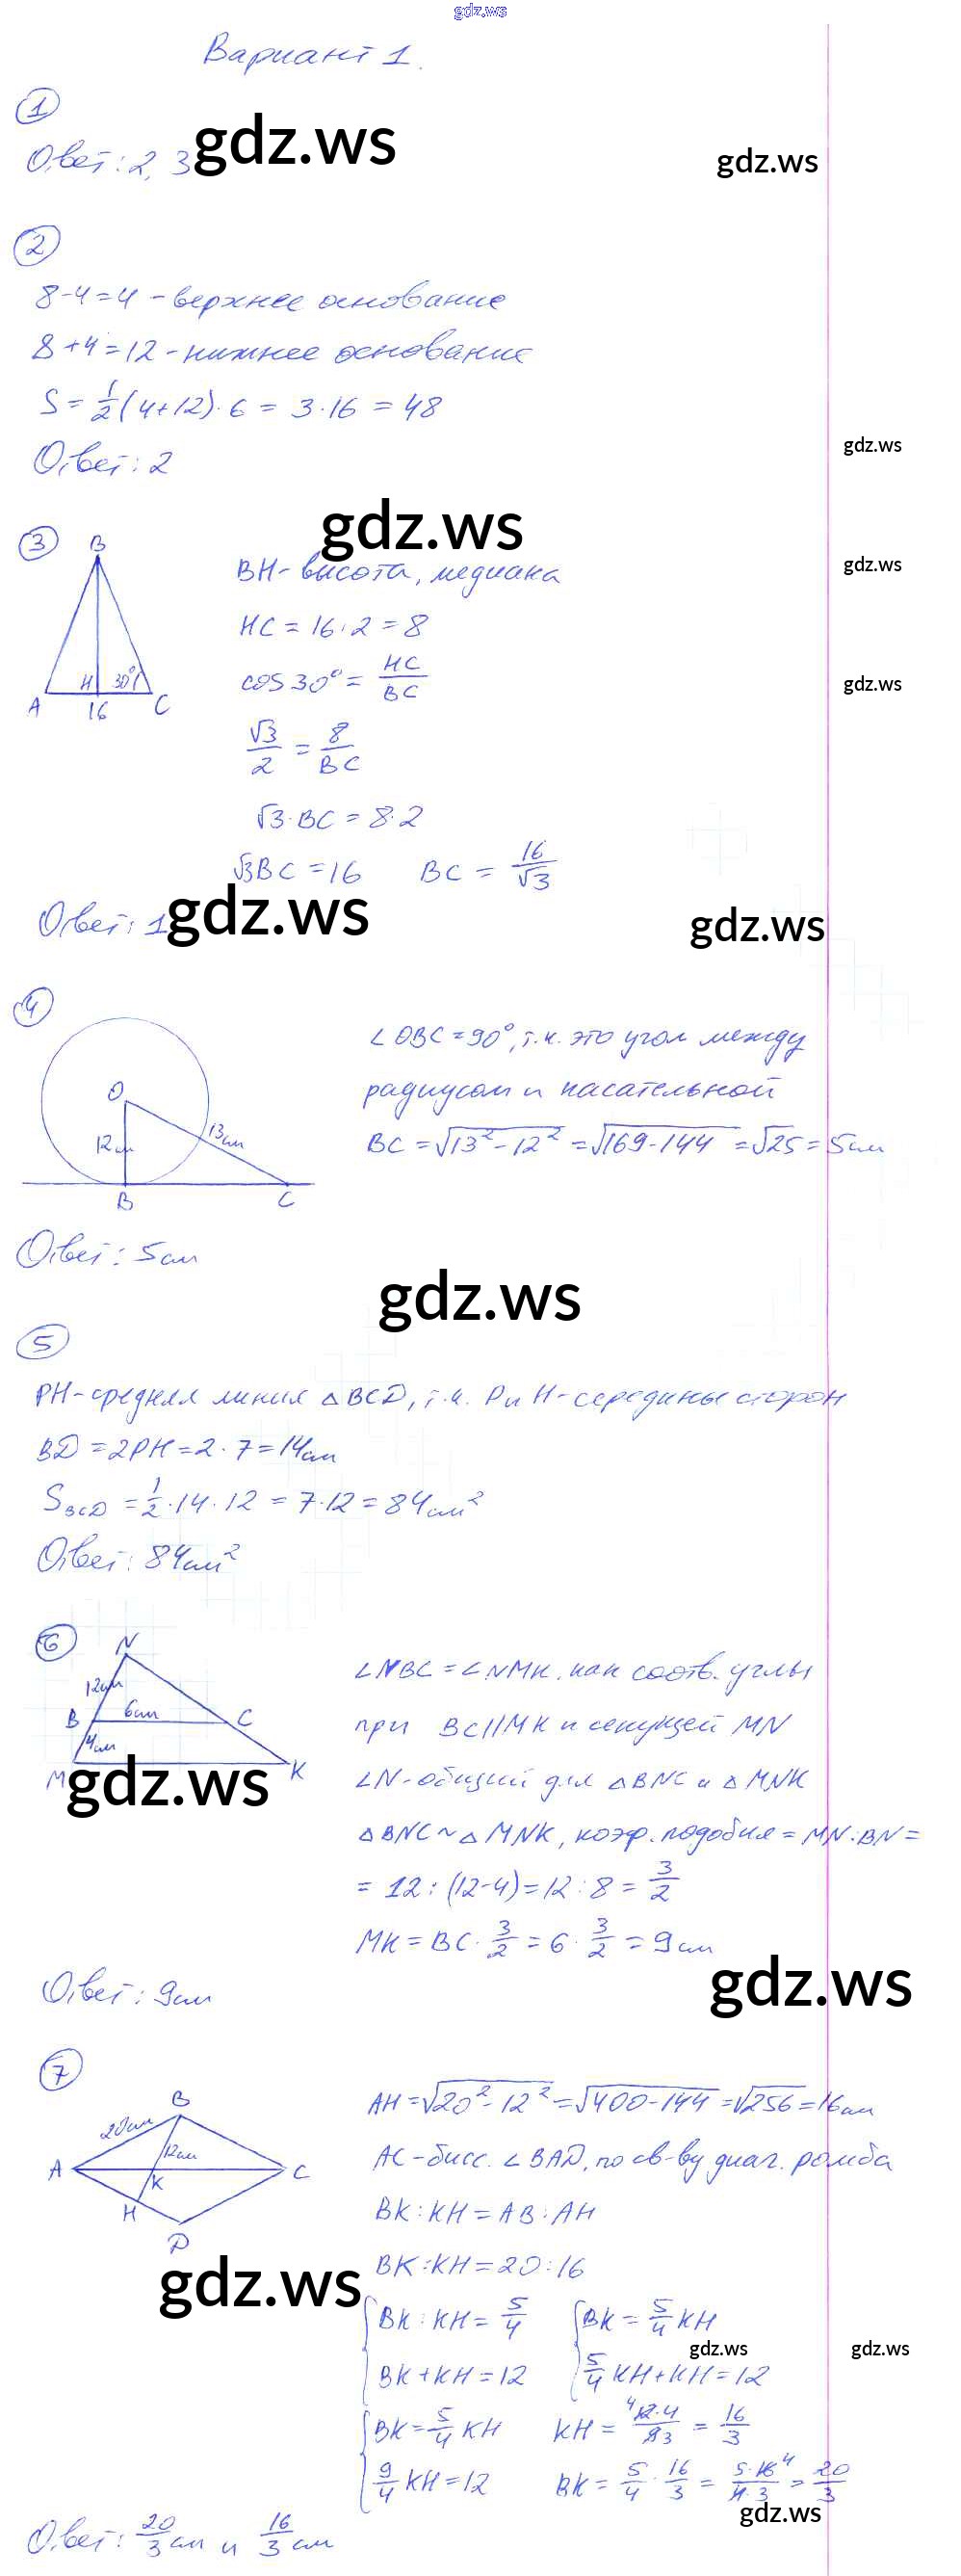 gdz.ws
Вариант 1.
1
Ответ: 2, 3
gdz.ws
gdz.ws
2
8-4=4 - верхнее основание
8+4=12 - нижнее основание
S = 1/2 (4+12)·6 = 3·16 = 48
gdz.ws
Ответ: 2
gdz.ws
3
B
A
H
30°
C
16
BH - высота, медиана
gdz.ws
HC = 16:2 = 8
cos 30° = HC/BC
gdz.ws
√3/2 = 8/BC
√3·BC = 8·2
√3BC = 16 BC = 16/√3
Ответ: 1
gdz.ws
gdz.ws
4
O
12см
13см
B
C
∠OBC = 90°, т.к. это угол между
радиусом и касательной
BC = √13²-12² = √169-144 = √25 = 5см
Ответ: 5см
gdz.ws
5
PH - средняя линия △BCD, т.к. P и H - середины сторон
BD = 2PH = 2·7 = 14см
S BCD = 1/2·14·12 = 7·12 = 84см²
Ответ: 84см²
6
N
12см
B
6см
C
4см
M
K
gdz.ws
∠NBC = ∠NMK, как соотв. углы
при BC||MK и секущей MN
∠N - общий для △BNC и △MNK
△BNC ~ △MNK, коэф. подобия = MN:BN =
= 12:(12-4) = 12:8 = 3/2
MK = BC·3/2 = 6·3/2 = 9см
gdz.ws
Ответ: 9см
7
B
20см
12см
A
K
C
H
D
AH = √20²-12² = √400-144 = √256 = 16см
AC - бисс. ∠BAD, по св-ву диаг. ромба
BK:KH = AB:AH
BK:KH = 20:16
gdz.ws
{BK:KH = 5/4 {BK = 5/4 KH
gdz.ws
gdz.ws
BK+KH = 12 5/4 KH+KH = 12
{BK = 5/4 KH KH = 12·4/9 4 3 = 16/3
9/4 KH = 12 BK = 5/4 · 16/3 = 5·16 4/4·3 = 20/3
gdz.ws
Ответ: 20/3 см и 16/3 см